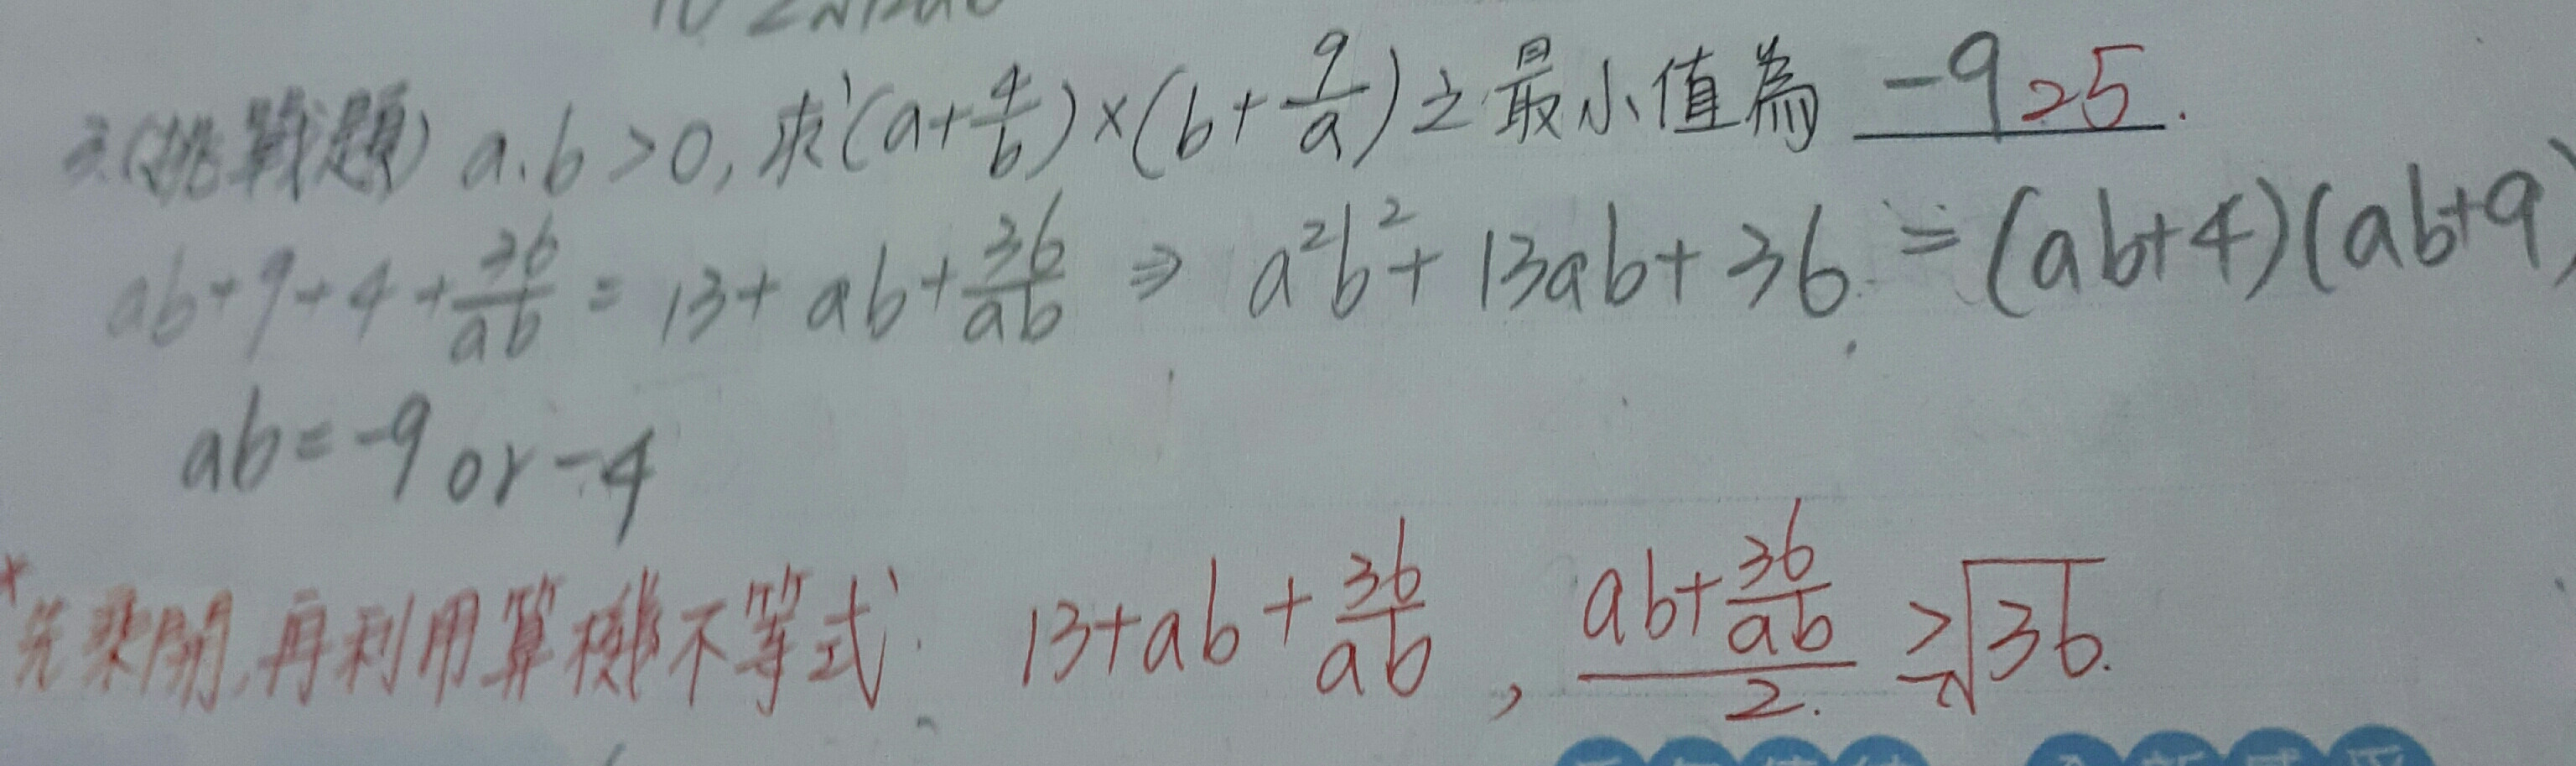 3.(挑戰題) a.b>0,求(a+4/b)×(b+9/a)之最小值為 -9 25.
ab+9+4+36/ab = 13+ab+36/ab ⇒ a²b²+13ab+36 = (ab+4)(ab+9)
ab=-9 or -4
*先乘開,再利用算幾不等式: 13+ab+36/ab , (ab+36/ab)/2. ≥√36.